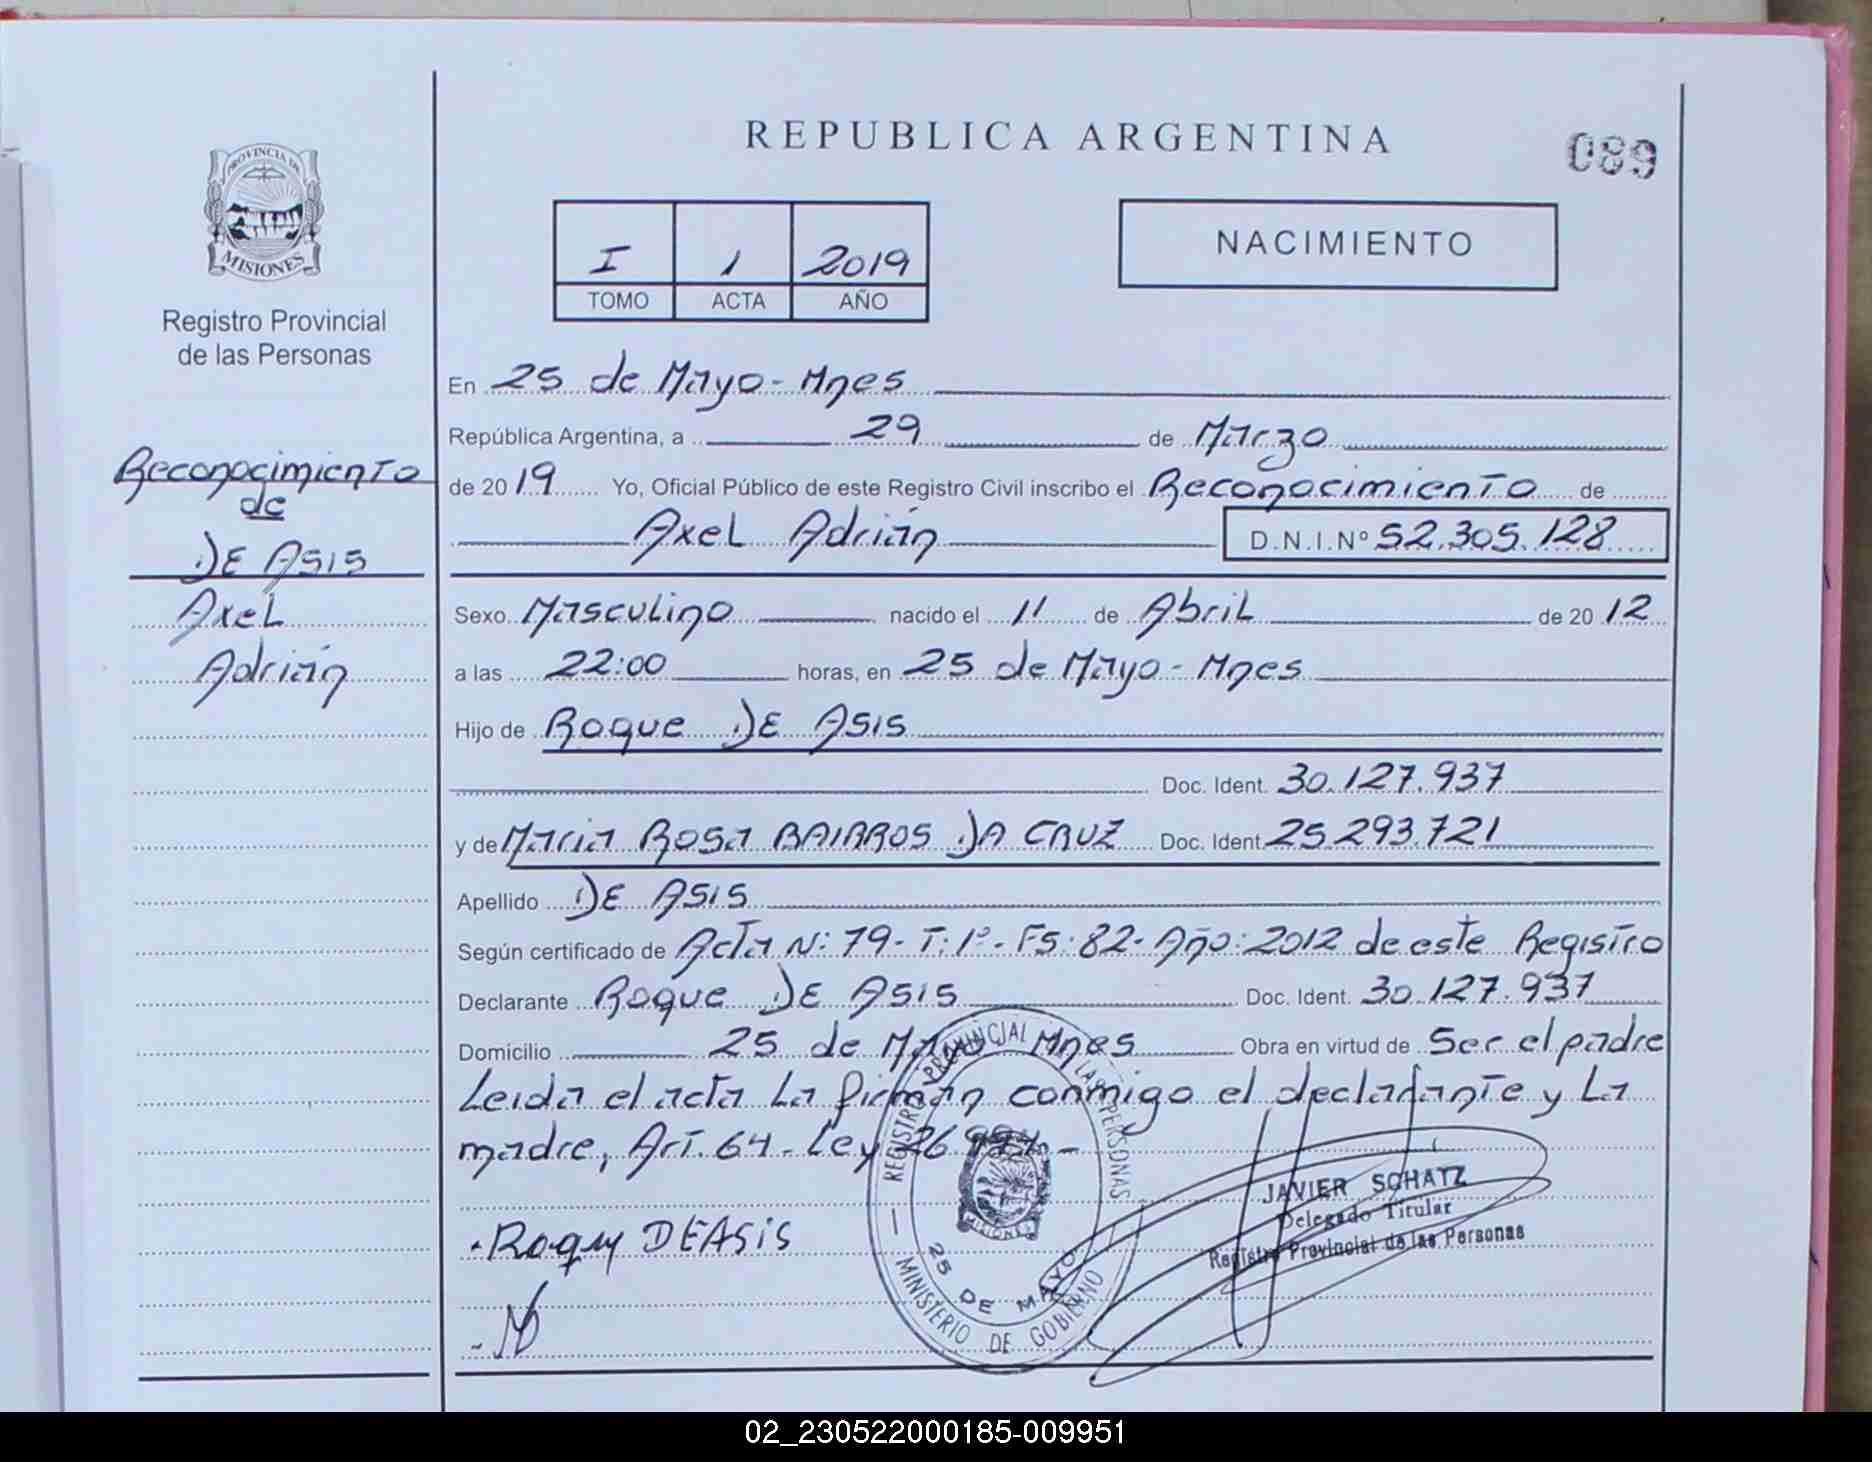 REPUBLICA ARGENTINA
089
PROVINCIA DE
MISIONES
Registro Provincial
de las Personas
I 1 2019
TOMO ACTA AÑO
NACIMIENTO
Reconocimiento
de
DE ASIS
Axel
Adrián
En 25 de Mayo - Mnes
República Argentina, a 29 de Marzo
de 2019 Yo, Oficial Público de este Registro Civil inscribo el Reconocimiento de
Axel Adrián D.N.I.Nº 52.305.128
Sexo Masculino nacido el 11 de Abril de 2012
a las 22:00 horas, en 25 de Mayo - Mnes
Hijo de Roque DE ASIS
Doc. Ident. 30.127.937
y de Maria Rosa BAIRROS DA CRUZ Doc. Ident. 25.293.721
Apellido DE ASIS
Según certificado de Acta N: 79- T: 1º- Fs: 82- Año: 2012 de este Registro
Declarante Roque DE ASIS Doc. Ident. 30.127.937
Domicilio 25 de Mayo Mnes Obra en virtud de Ser el padre
Leida el acta La firman conmigo el declarante y La
madre, Art. 64 - Ley
REGISTRO PROVINCIAL DE LAS PERSONAS
MISIONES
25 DE MAYO
MINISTERIO DE GOBIERNO
JAVIER SCHATZ
Delegado Titular
Registro Provincial de las Personas
Roque DEASIS
02_230522000185-009951